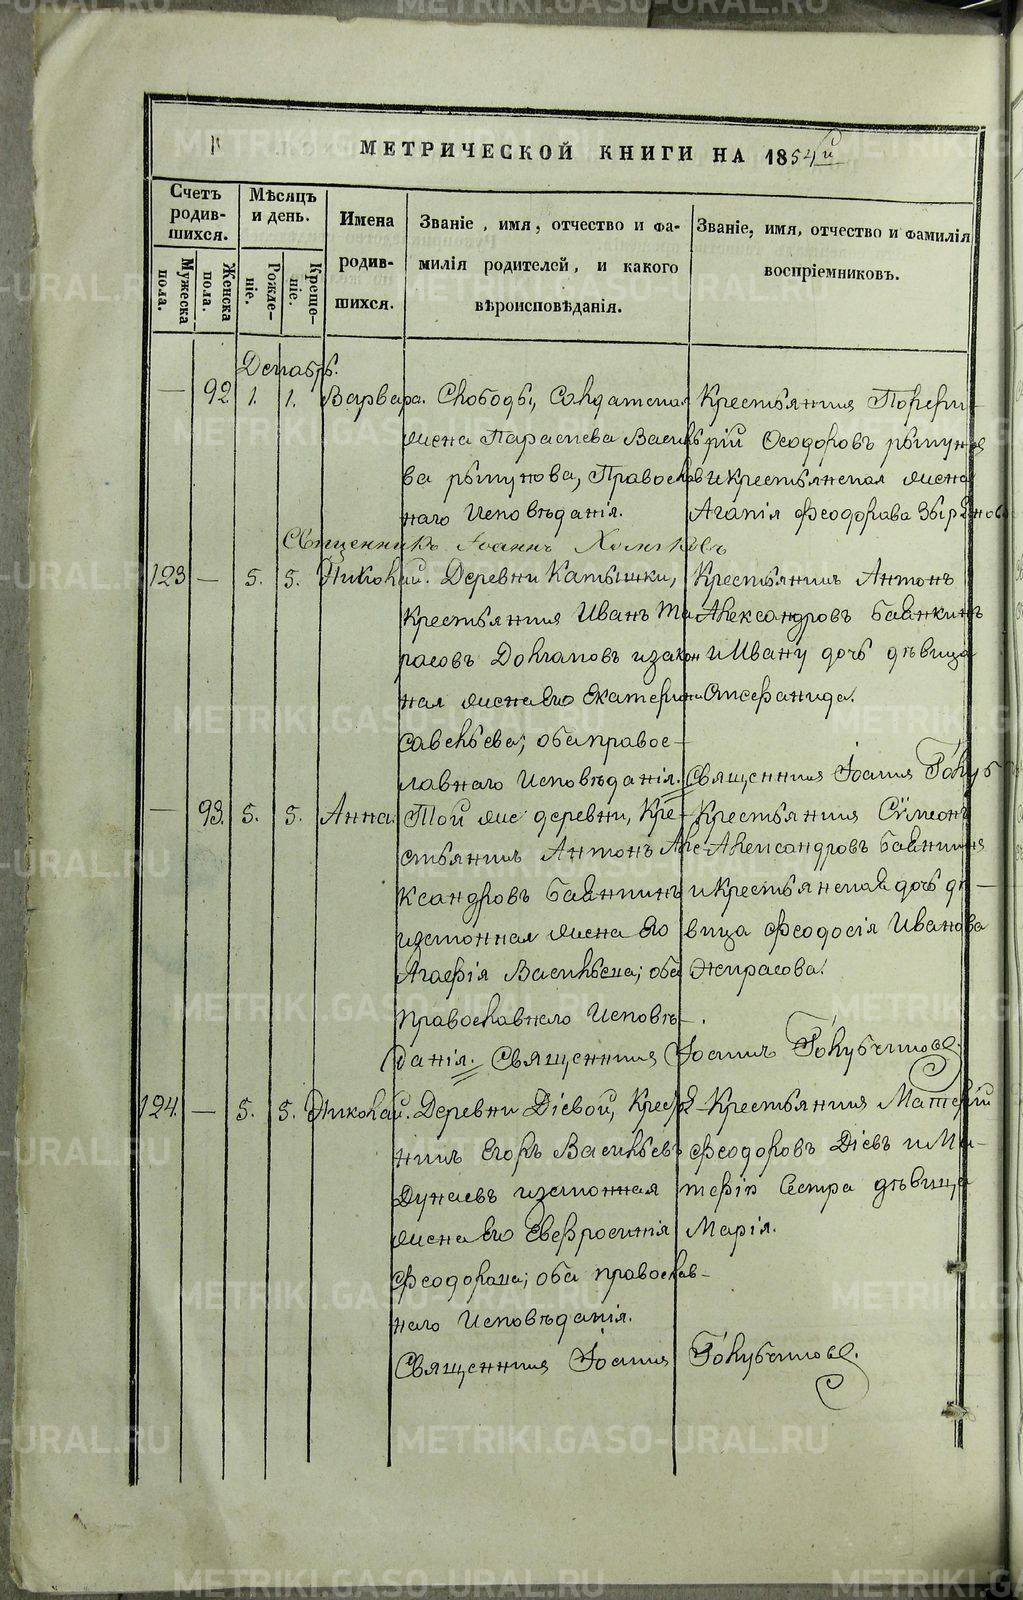 METRIKI.GASO-URAL.RU
МЕТРИЧЕСКОЙ КНИГИ НА 1854й
Счетъ родив-шихся.
Мужеска пола.
Женска пола.
Мѣсяцъ и день.
Рожде-ніе.
Креще-ніе.
Имена родив-шихся.
Званіе, имя, отчество и фа-
милія родителей, и какого
вѣроисповѣданія.
Званіе, имя, отчество и фамилія
воспріемниковъ.
Декабрь.
— 92 1. 1. Варвара. Слободы, Солдатская
жена Параскева Василь
ва
Православ
наго Исповѣданія.
Крестьянинъ Порфи-
рій Ѳеодоровъ
и крестьянская жена
Агапія Феодорова
Священникъ Іоаннъ
123 — 5. 5. Николай. Деревни Катышки,
Крестьянинъ Иванъ Та
расовъ Долгановъ и закон
ная жена Его Екатерина
Савельева; оба правос-
лавнаго Исповѣданія.
Крестьянинъ Антонъ
Александровъ
и Ивану дочь дѣвица
Священникъ Іоаннъ Голуб
— 93. 5. 5. Анна. Той же деревни, Кре-
стьянинъ Антонъ Але-
ксандровъ
законная жена Его
Агафія Васильева; оба
Православнаго Исповѣ-
данія.
Крестьянинъ Сѵмеонъ
Александровъ
и Крестьянская дочь дѣ-
вица Феодосія Иванова
Священникъ Іоаннъ Голубчиковъ.
124. — 5. 5. Николай. Деревни Діевой, Крестья-
нинъ Егоръ Васильевъ
Дунаевъ законная
жена Его Евфросинія
Феодорова; оба православ-
наго Исповѣданія.
Крестьянинъ Матфій
Феодоровъ Діевъ и Ма-
тфія Сестра дѣвица
Марія.
Священникъ Іоаннъ Голубчиковъ.